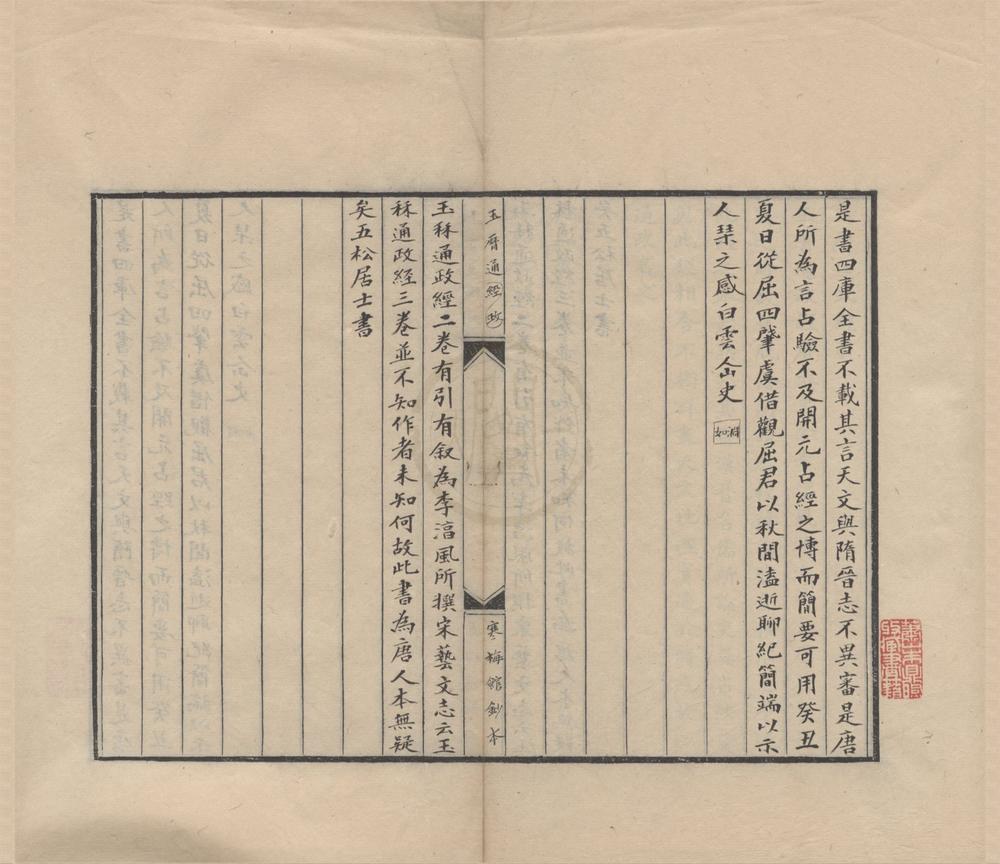 是書四庫全書不載其言天文與隋晉志不異審是唐
人所為言占驗不及開元占經之博而簡要可用癸丑
夏日從屈四肇虞借觀屈君以秋間溘逝聊紀簡端以示
人琹之感白雲仚史
淵如
玉曆通經
寒梅館鈔本
玉秝通政經二卷有引有叙為李淳風所撰宋藝文志云玉
秝通政經三卷並不知作者未知何故此書為唐人本無疑
矣五松居士書